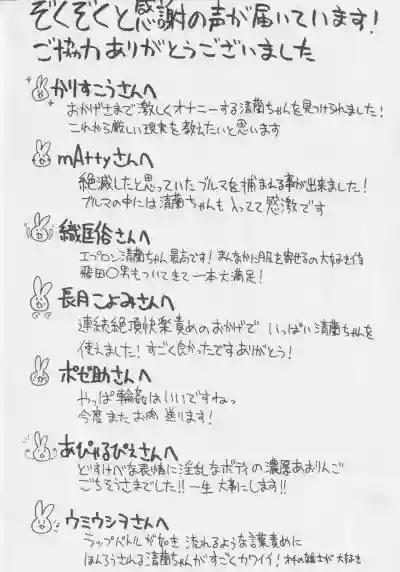 ぞくぞくと感謝の声が届いています!
ご協力ありがとうございました
かりすこうさんへ
おかげさまで激しくオナニーする清蘭ちゃんを見つけられました!
これから厳しい現実を教えたいと思います
mAttyさんへ
絶滅したと思っていたブルマを捕まえる事が出来ました!
ブルマの中には清蘭ちゃんも入ってて感激です
織匡俗さんへ
エプロン清蘭ちゃん最高です!まんなかに服を寄せるの大好き侍
飛田〇男もついてきて一本大満足!
長月こよみさんへ
連続絶頂快楽責めのおかげで いっぱい清蘭ちゃんを
使えました!すごく良かったですありがとう!
ポゼ助さんへ
やっぱ輪姦はいいですねっ
今度またお肉 送ります!
あぴゃるぴえさんへ
どすけべな表情に淫乱なボディの濃厚あおりんご
ごちそうさまでした!!一生 大事にします!!
ウミウシヲさんへ
ラップバトルが如き 流れるような言葉責めに
ほんろうされる清蘭ちゃんがすごくカワイイ! 大好き